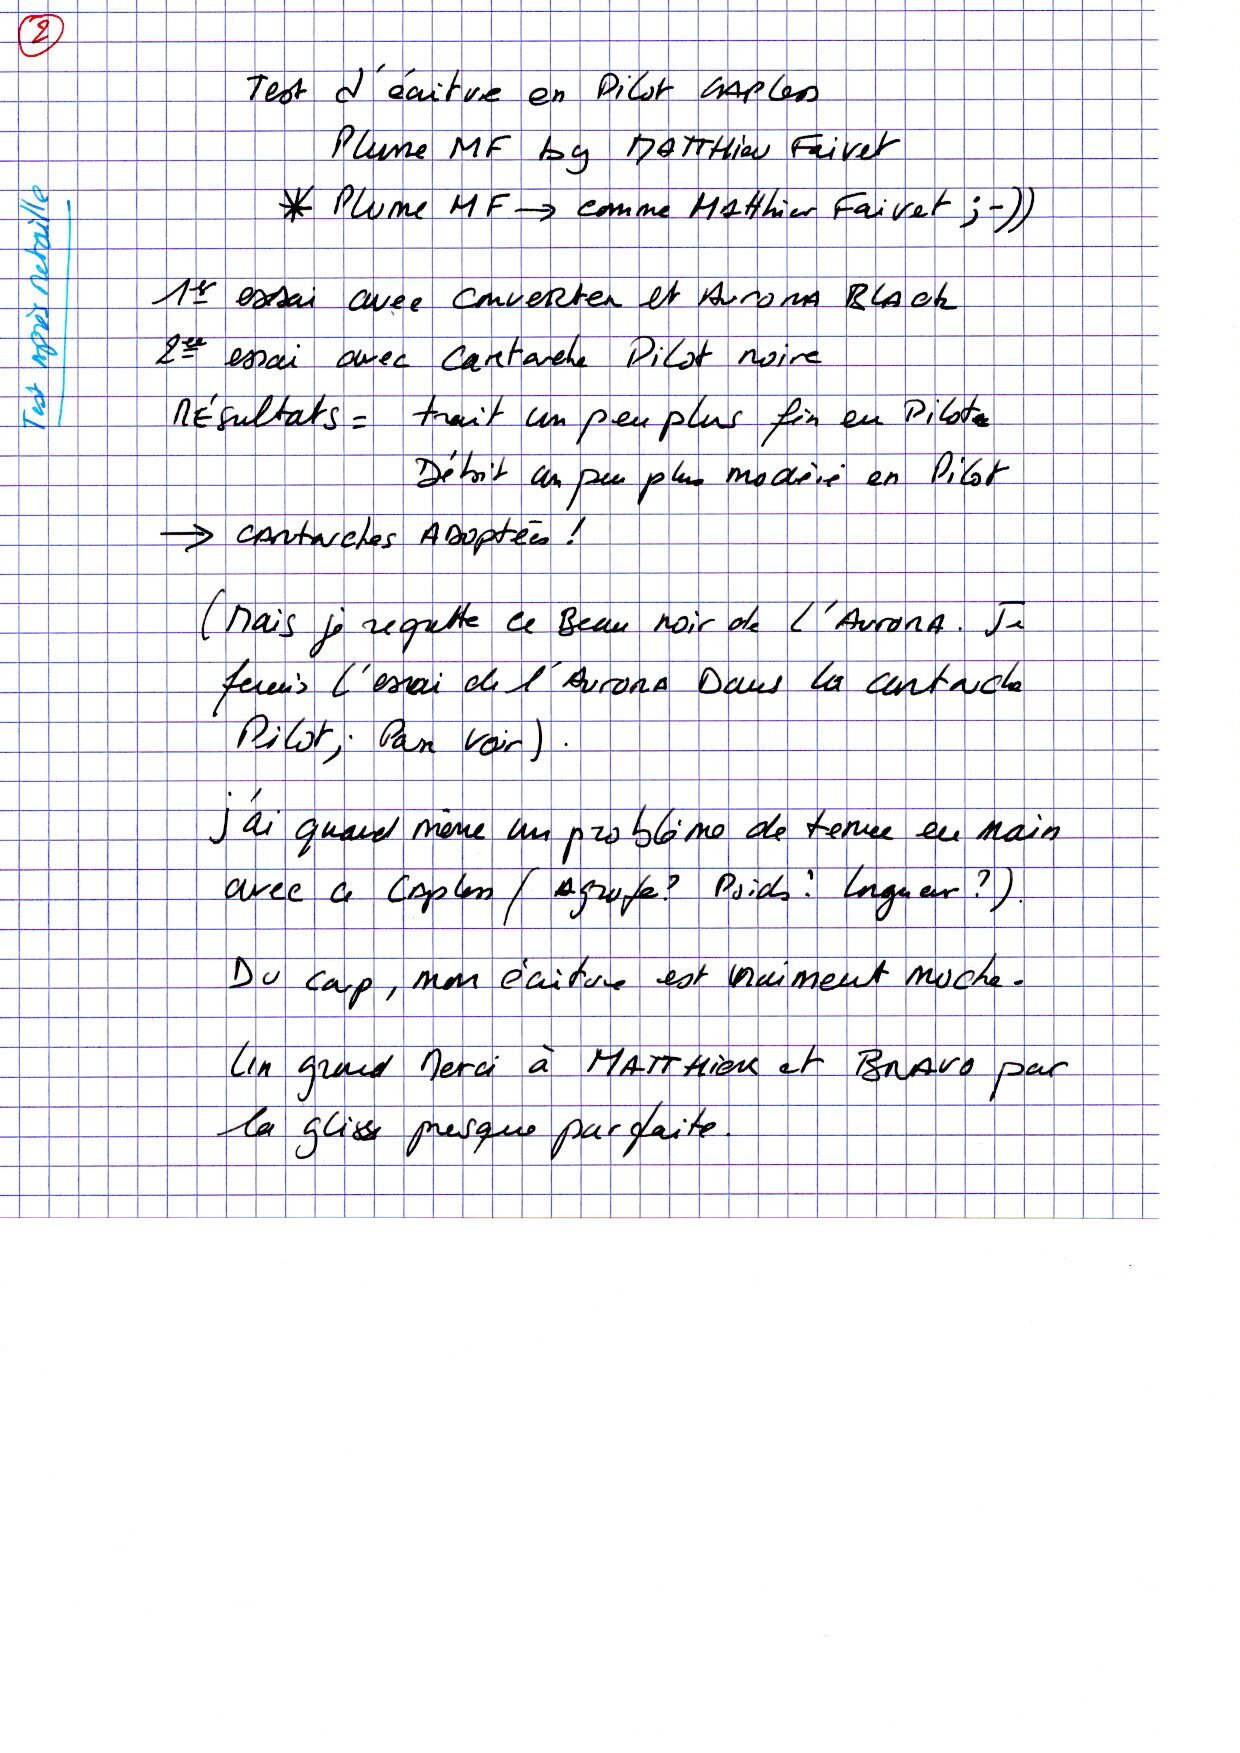 2
Test après retaille
Test d'écriture en Pilot CAPless
Plume MF by MATTHieu Faivet
* Plume MF → comme MAtthieu Faivet ;-))
1er essai avec converter et AuroRA BLACk
2ee essai avec Cartouche Pilot noire
RÉsultats = trait un peu plus fin en Pilot
Débit un peu plus modéré en Pilot
→ CARtouches ADoptées !
(Mais je regrette ce Beau noir de l'AuroRA. Je
ferais l'essai de l'AuroRA Dans la cartouche
Pilot, Par voir).
j'ai quand même un problème de tenue en main
avec ce CApless (Agrafe? Poids? longueur?).
Du coup, mon écriture est vraiment moche.
Un grand Merci à MATTHieu et BRAVO par
la glisse presque parfaite.